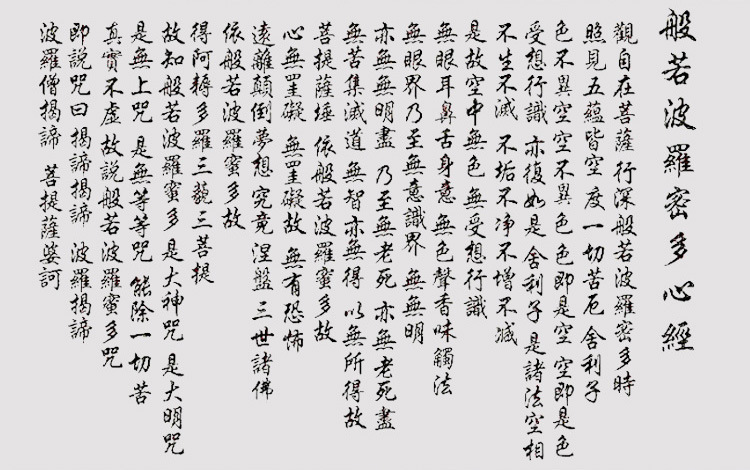 般若波羅密多心經
觀自在菩薩 行深般若波羅密多時
照見五蘊皆空 度一切苦厄 舍利子
色不異空 空不異色 色即是空 空即是色
受想行識 亦復如是 舍利子 是諸法空相
不生不滅 不垢不净 不增不減
是故空中無色 無受想行識
無眼耳鼻舌身意 無色聲香味觸法
無眼界 乃至無意識界 無無明
亦無無明盡 乃至無老死 亦無老死盡
無苦集滅道 無智亦無得 以無所得故
菩提薩埵 依般若波羅蜜多故
心無罣礙 無罣礙故 無有恐怖
遠離顛倒夢想 究竟涅盤 三世諸佛
依般若波羅蜜多故
得阿耨多羅三藐三菩提
故知般若波羅蜜多 是大神咒 是大明咒
是無上咒 是無等等咒 能除一切苦
真實不虛 故說般若波羅蜜多咒
即說咒曰 揭諦揭諦 波羅揭諦
波羅僧揭諦 菩提薩婆訶